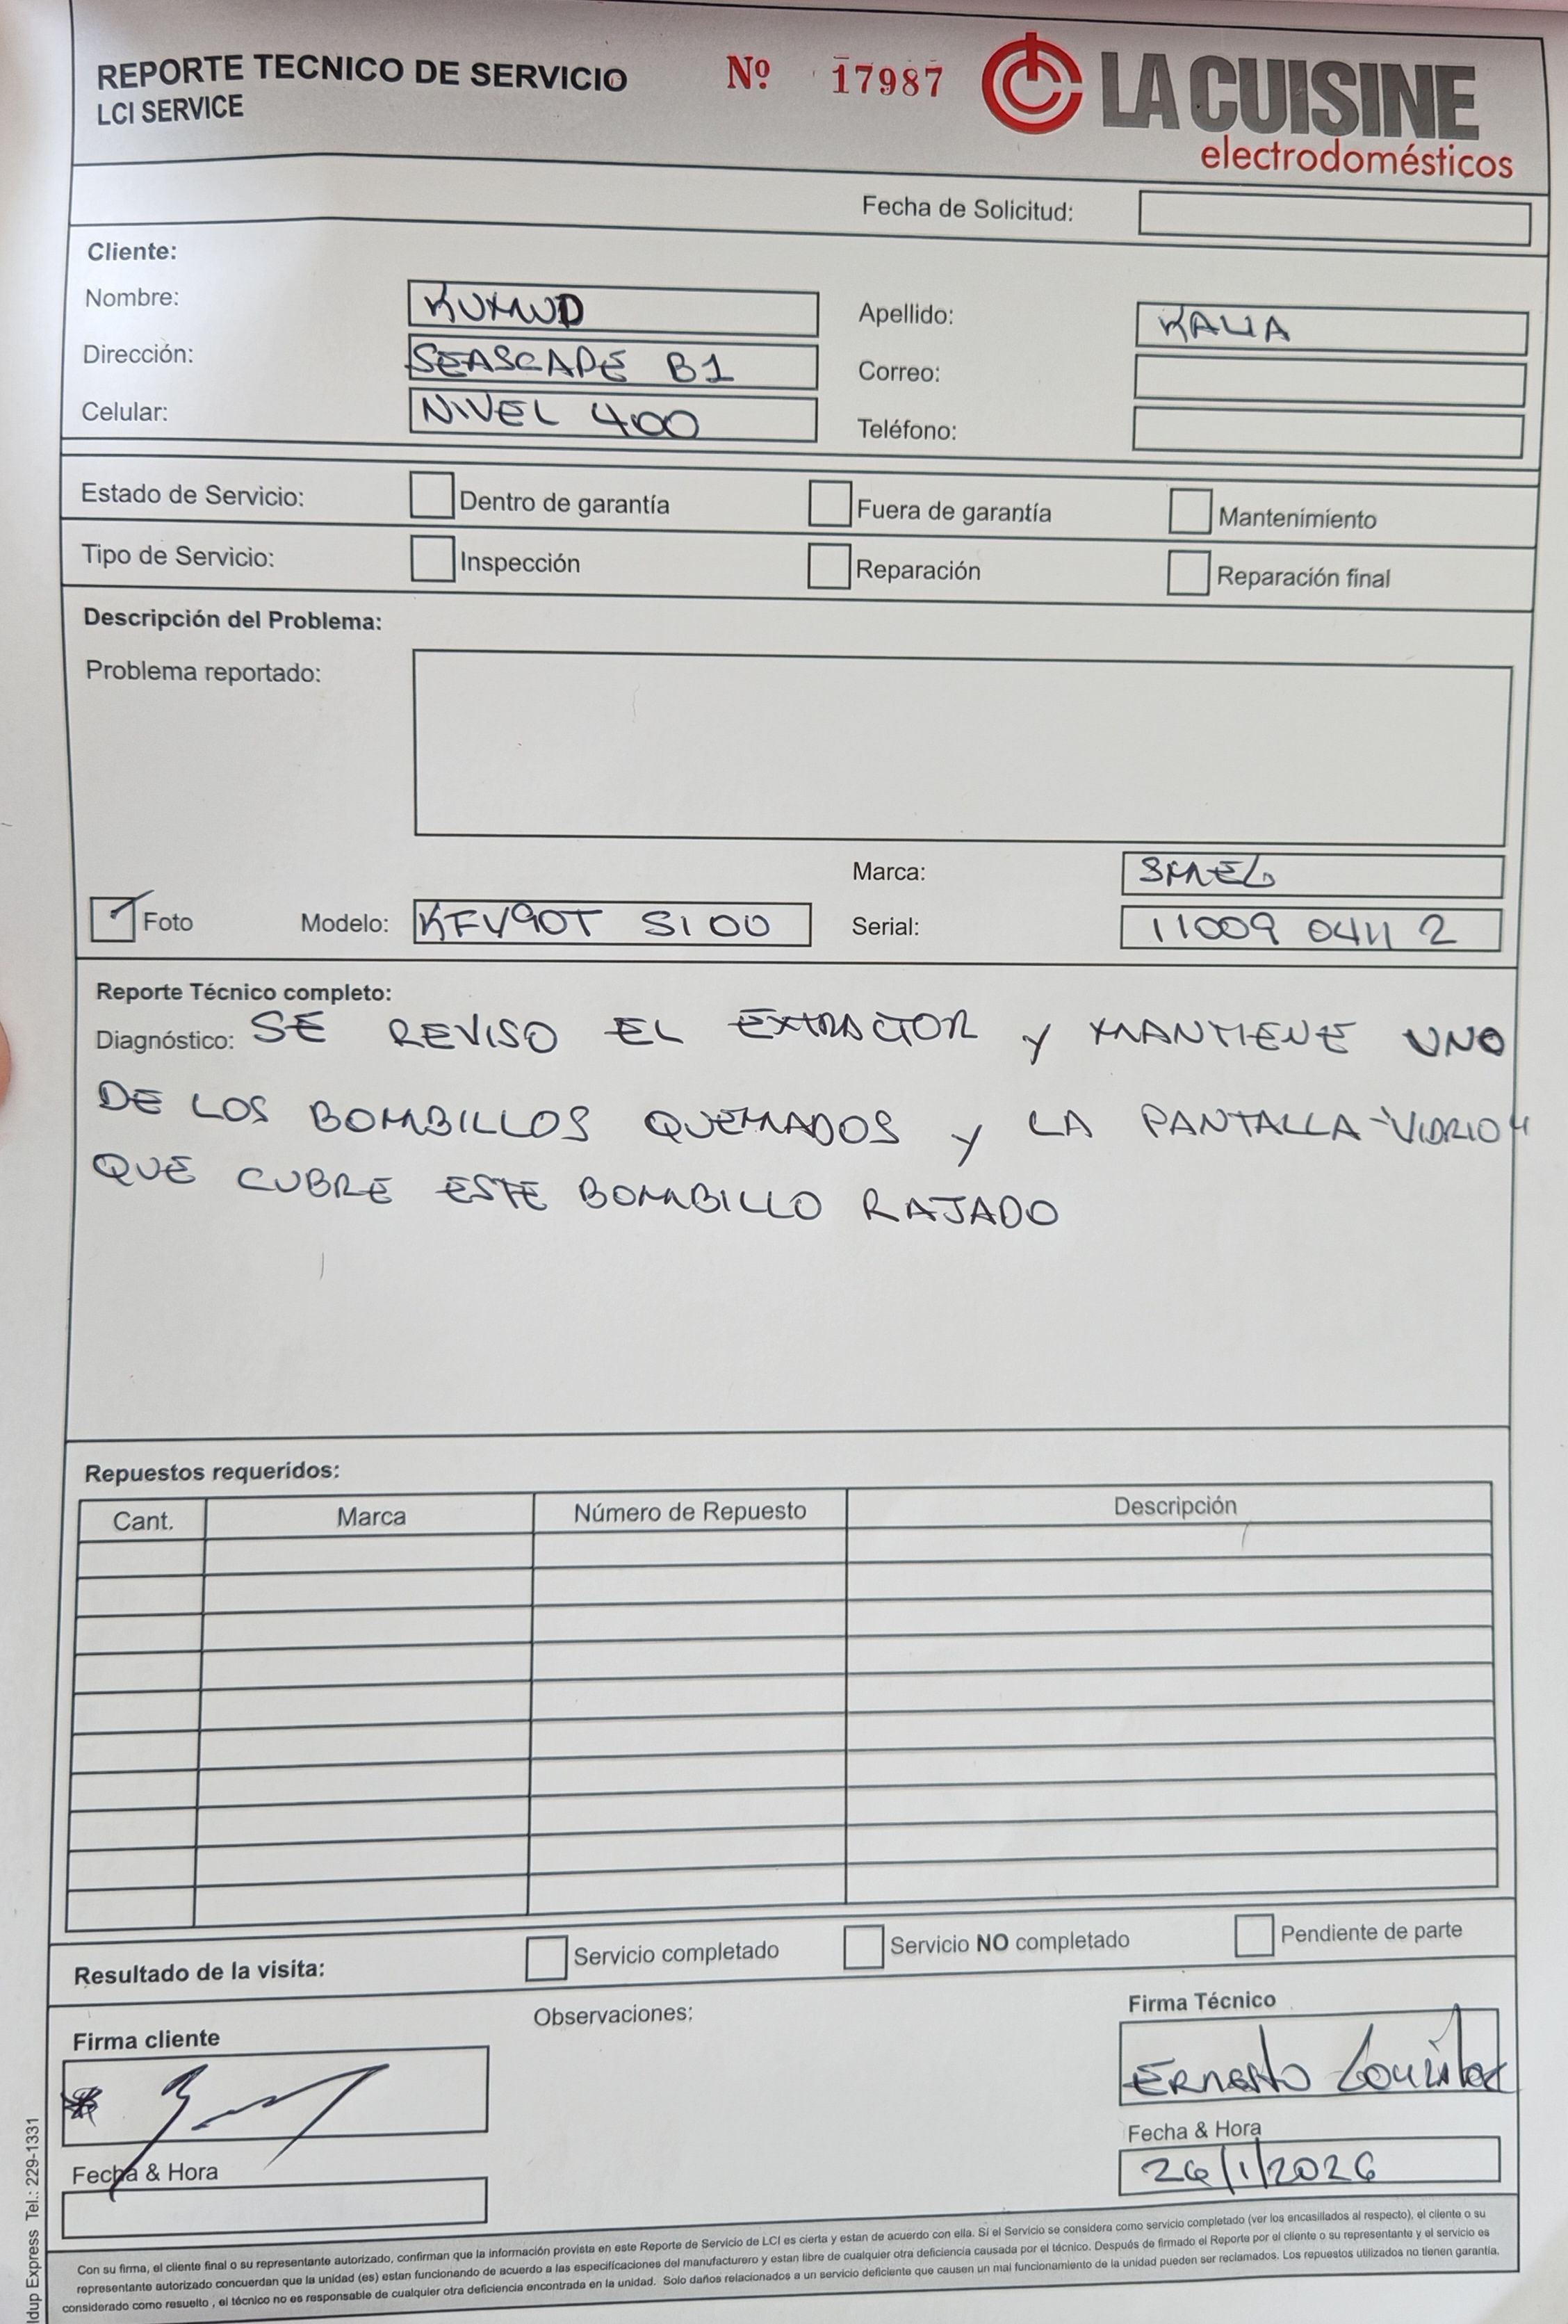 REPORTE TECNICO DE SERVICIO
LCI SERVICE
Nº 17987
LA CUISINE
electrodomésticos
Fecha de Solicitud:
Cliente:
Nombre: KUMUD Apellido: KALIA
Dirección: SEASCAPE B1 Correo:
Celular: NIVEL 400 Teléfono:
Estado de Servicio: Dentro de garantía Fuera de garantía Mantenimiento
Tipo de Servicio: Inspección Reparación Reparación final
Descripción del Problema:
Problema reportado:
Marca: SMEG
Foto Modelo: KFV90T S100 Serial: 11009 0411 2
Reporte Técnico completo:
Diagnóstico: SE REVISO EL EXTRACTOR Y MANTIENE UNO
DE LOS BOMBILLOS QUEMADOS Y LA PANTALLA "VIDRIO"
QUE CUBRE ESTE BOMBILLO RAJADO
Repuestos requeridos:
Cant. Marca Número de Repuesto Descripción
Resultado de la visita: Servicio completado Servicio NO completado Pendiente de parte
Firma cliente Observaciones: Firma Técnico
Ernesto
Fecha & Hora Fecha & Hora
26/1/2026
Con su firma, el cliente final o su representante autorizado, confirman que la información provista en este Reporte de Servicio de LCI es cierta y estan de acuerdo con ella. Si el Servicio se considera como servicio completado (ver los encasillados al respecto), el cliente o su
representante autorizado concuerdan que la unidad (es) estan funcionando de acuerdo a las especificaciones del manufacturero y estan libre de cualquier otra deficiencia causada por el técnico. Después de firmado el Reporte por el cliente o su representante y el servicio es
considerado como resuelto , el técnico no es responsable de cualquier otra deficiencia encontrada en la unidad. Solo daños relacionados a un servicio deficiente que causen un mal funcionamiento de la unidad pueden ser reclamados. Los repuestos utilizados no tienen garantía.
Express Tel.: 229-1331